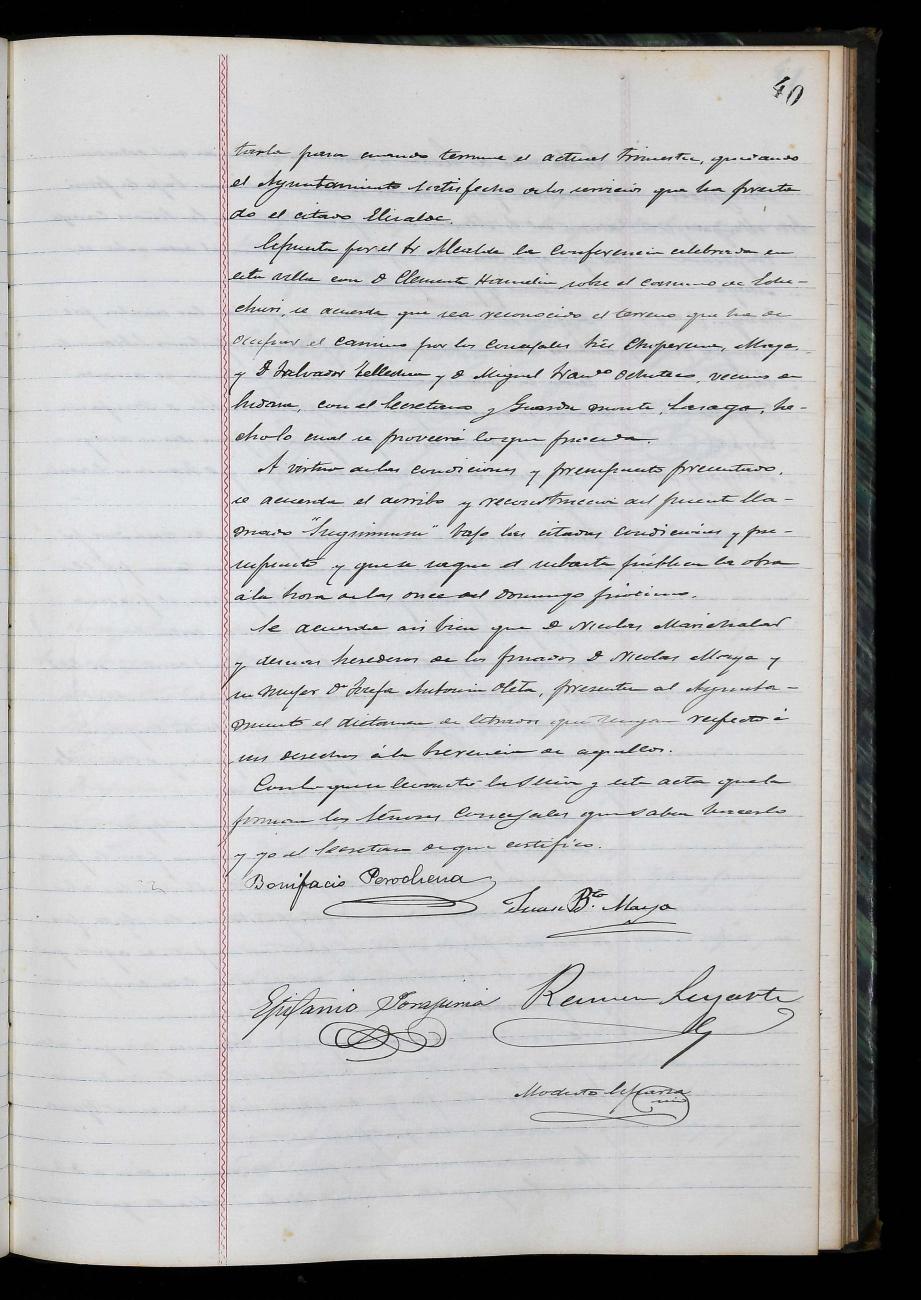 40
tarla para cuando termine el actual trimestre, quedando
el Ayuntamiento satisfecho de los servicios que ha presta
do el citado Elizalde.
Expuesta por el Sr Alcalde la conferencia celebrada en
esta villa con D Clemente sobre el camino de
se acuerda que sea reconocido el terreno que ha de
ocupar el camino por los concejales Sres Maya,
y D Salvador Tellechea y D Miguel vecino de
con el Secretario y Guarda monte, he-
cho lo cual se proveerá lo que proceda.
A virtud de las condiciones y presupuesto presentado,
se acuerda el derribo y reconstrucción del puente lla-
mado bajo las citadas condiciones y pre-
supuesto y que se saque á subasta pública la obra
á la hora de las once del Domingo próximo.
Se acuerda asi bien que D Nicolas Marichalar
y demas herederos de los finados D Nicolas Maya y
su mujer Da Josefa Antonia Oleta, presenten al Ayunta-
miento el dictamen de letrados que tengan respecto á
sus derechos á la herencia de aquellos.
Con lo que se levantó la sesión y esta acta que la
firman los Señores Concejales que saben hacerlo
y yo el Secretario de que certifico.
Bonifacio Perochena
Juan Bta. Maya
Epifanio
Ramon
Modesto